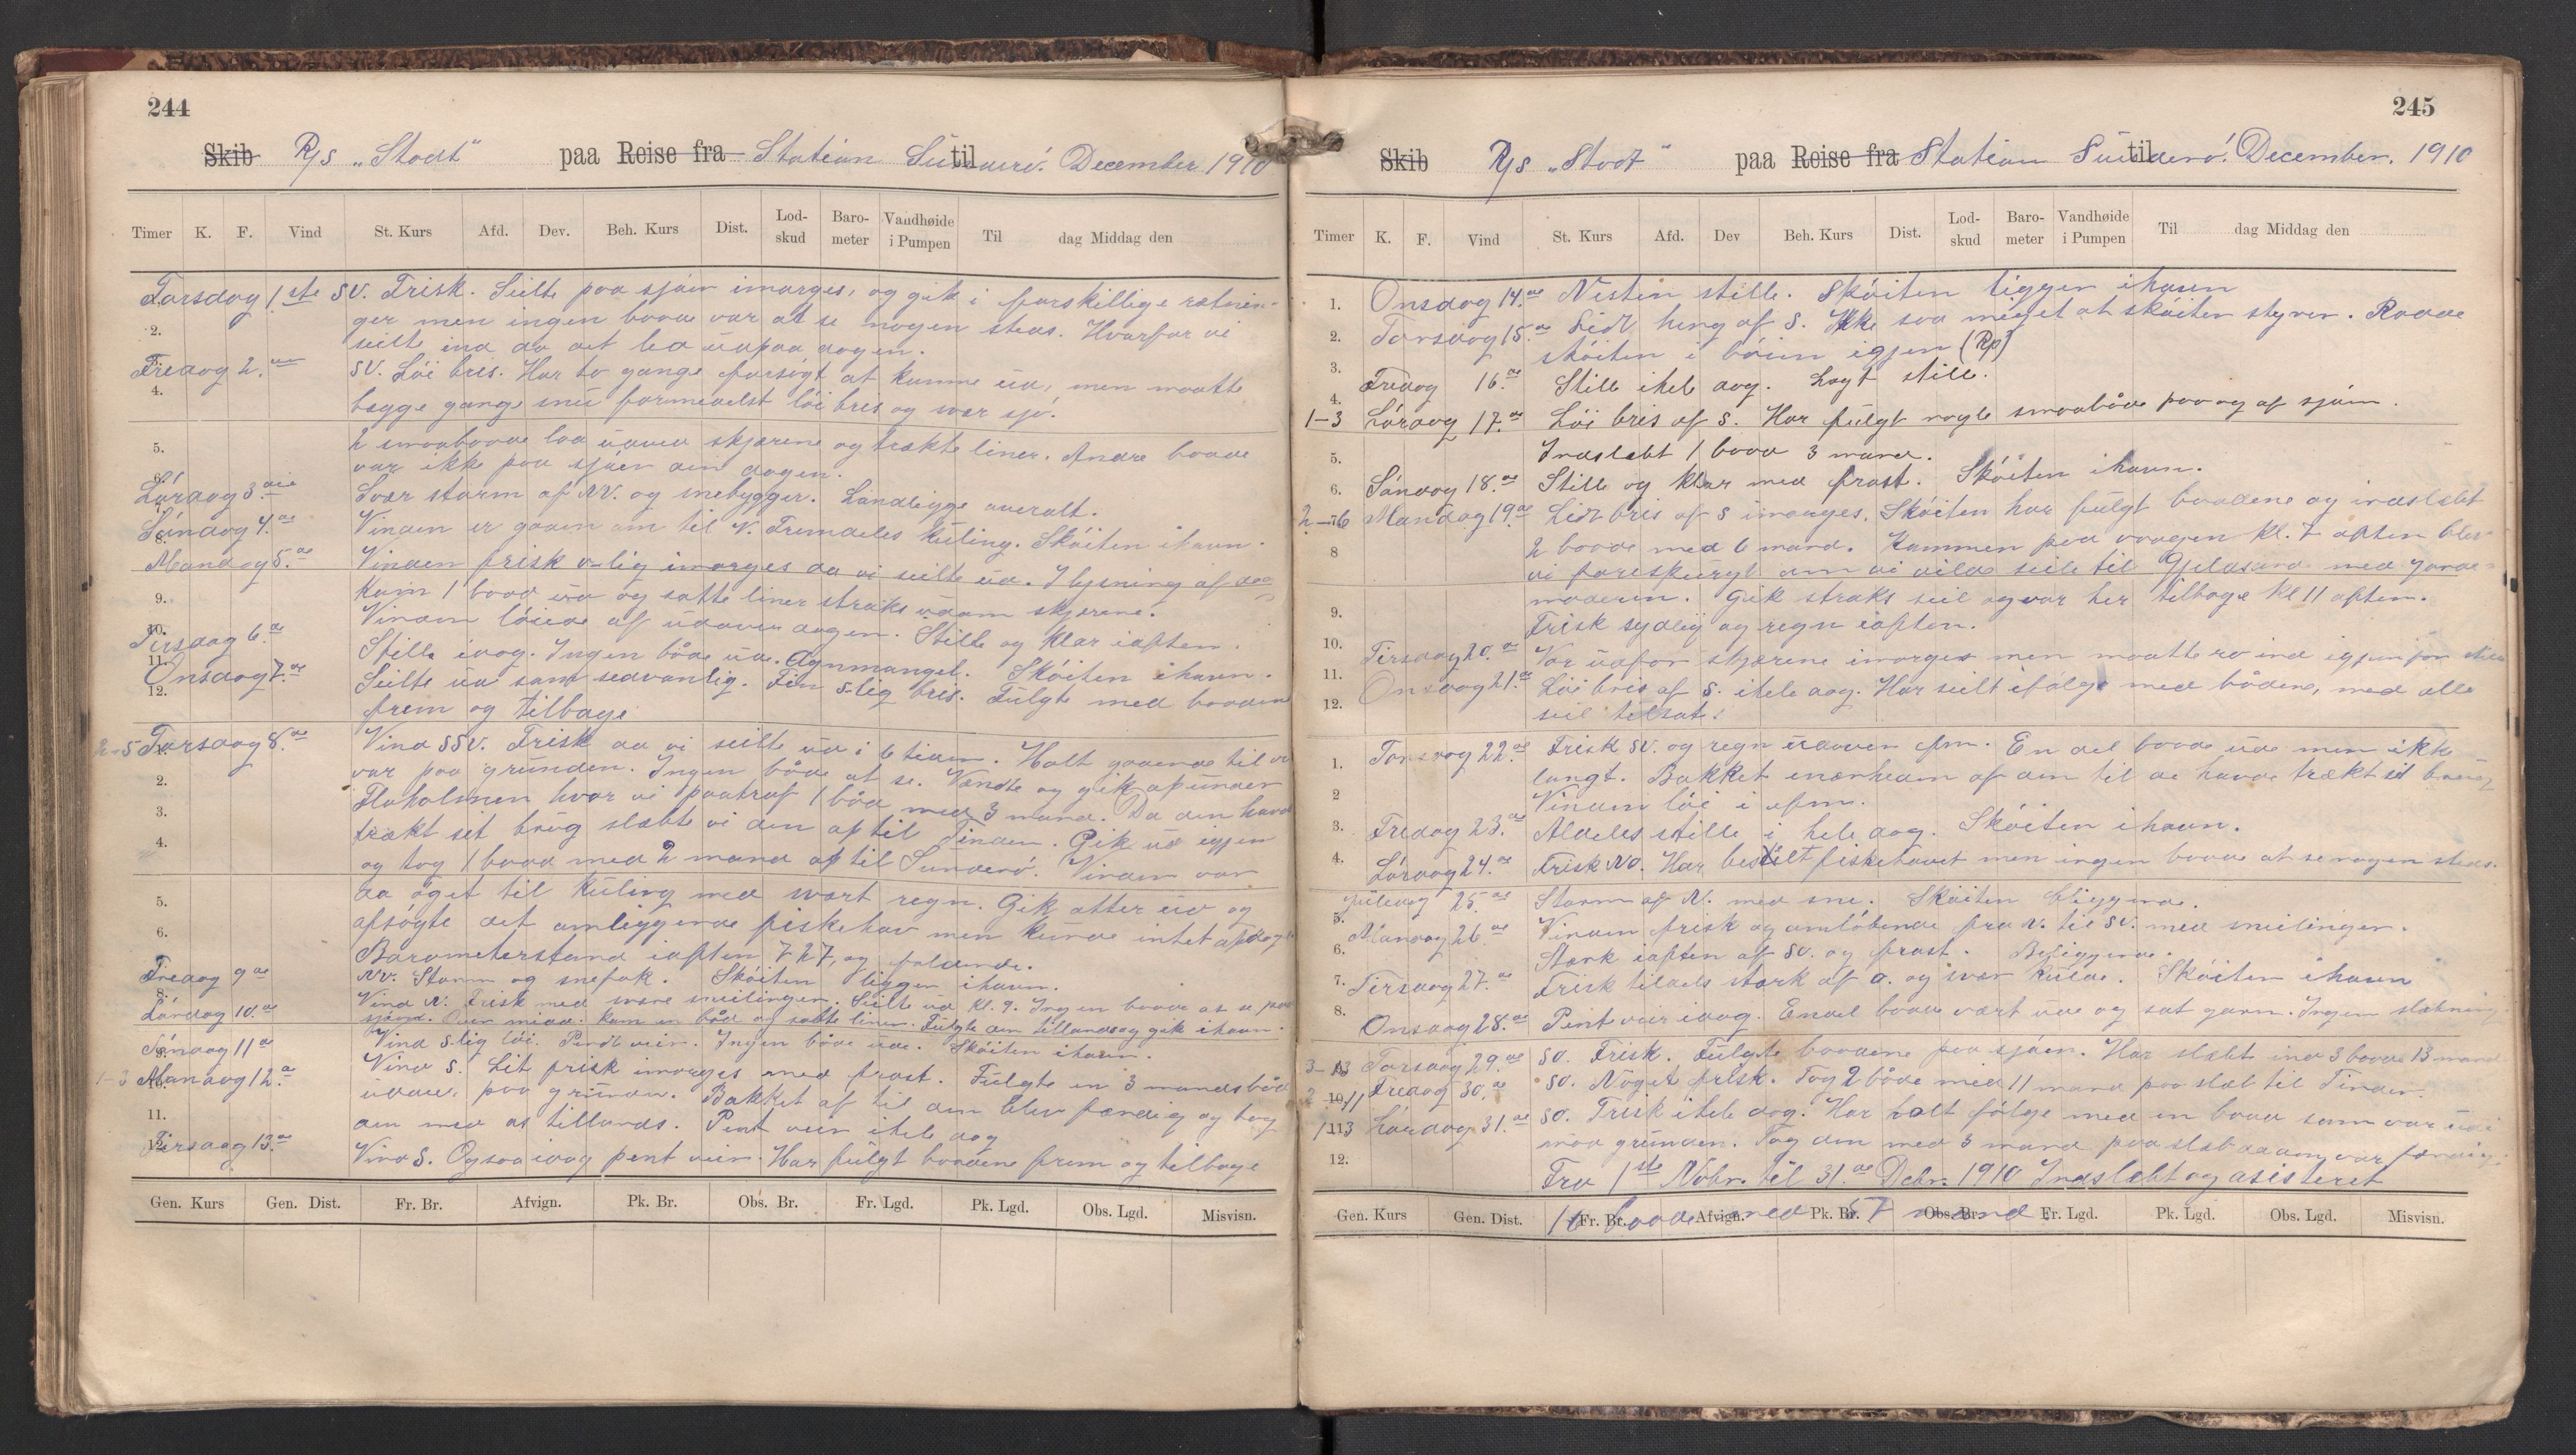 244
Skib R/s „Stadt“ paa Reise fra Station Sunderö. til December 1910
Timer K. F. Vind St. Kurs Afd. Dev. Beh. Kurs Dist. Lod-skud Baro-meter Vandhøide i Pumpen Til dag Middag den
Torsdag 1ste SV. Frisk. Seilte paa sjöen imorges, og gik i forskillige rætnin-
ger men ingen baade var at se nogen steds. Hvorfor vi
2. seilte ind da det led udpaa dagen.
Fredag 2. SV. Löi bris. Har to gange forsögt at komme ud, men maatte
4. begge gange snu formedelst löi bris og svær sjö.
5. 2 smaabaade laa udved skjærene og trækte liner. Andre baade
var ikke paa sjöen den dagen.
Lördag 3. Svær storm af NV. og snebygger. Landligge overalt.
Söndag 4. Vinden er gaaen om til V. Fremdeles kuling. Sköiten ihavn.
Mandag 5. Vinden frisk v-lig imorges da vi seilte ud. I lysning af dag
9. kom 1 baad ud og satte liner straks udom skjærene.
10. Vinden löiede af udover dagen. Stille og klar iaften.
Tirsdag 6. Stille idag. Ingen både ude. Agnmangel. Sköiten ihavn.
11.
Onsdag 7. Seilte ud som sedvanlig. Fin S-lig bris. Fulgte med baadene
12. frem og tilbage
2-5 Torsdag 8. Vind SSV. Frisk da vi seilte ud i 6 tiden. Holt gaaende til vi
2. var paa grunden. Ingen både at se. Vendte og gik opunder
3. Flaholmen hvor vi paatraf 1 båd med 3 mand. Da den havde
4. trækt sit brug slæbte vi den op til Tinden. Gik ud igjen
og tog 1 baad med 2 mand op til Sunderö. Vinden var
5. da öget til kuling med svært regn. Gik atter ud og
6. afsögte det omliggende fiskehav men kunde intet
Barometerstand iaften 727, og faldende.
Fredag 9 NV. Storm og snefok. Sköiten ligger ihavn.
8.
Lördag 10. Vind N. frisk med svære sneilinger. Seilte ud kl. 9. Ingen baade at se paa
sjöen. Over midd. kom en båd og satte liner. Fulgte den tillands og gik ihavn.
Söndag 11 Vind S-lig löi. Pendt veir. Ingen både ude. Sköiten ihavn.
1-3 Mandag 12. Vind S. Lit frisk imorges med frost. Fulgte en 3 mandsbåd
udover paa grunden. Bakket af til den blev færdig og tog
11. den med os tillands. Pent veir ihele dag
Tirsdag 13. Vind S. Ogsaa idag pent veir. Har fulgt baadene frem og tilbage
Gen. Kurs Gen. Dist. Fr. Br. Afvign. Pk. Br. Obs. Br. Fr. Lgd. Pk. Lgd. Obs. Lgd. Misvisn.
245
Skib R/s „Stadt“ paa Reise fra Station Sunderö. til December. 1910
Timer K. F. Vind St. Kurs Afd. Dev Beh. Kurs Dist. Lod-skud Baro-meter Vandhøide i Pumpen Til dag Middag den
1. Onsdag 14. Nesten stille. Sköiten ligger ihavn
2. Torsdag 15. Lidt heng af S. Ikke saa meget at sköiten styrer. Roede
3. sköiten i böien igjen (Rp)
Fredag 16. Stille ihele dag. Lagt stille.
4.
1-3 Lördag 17. Löi bris af S. Har fulgt nogle smaabåde paa og af sjöen.
5. Indslæbt 1 baad 3 mand.
6. Söndag 18. Stille og klar med frost. Sköiten ihavn.
2-6 Mandag 19. Lidt bris af S imorges. Sköiten har fulgt baadene og indslæbt
8 2 baade med 6 mand. Kommen paa vaagen kl. 7 aften blev
vi forespurgt om vi vilde seile til Gjeldsand med jorde-
9. moderen. Gik straks seil og var her tilbage kl 11 aften.
Frisk sydlig og regn iaften.
10. Tirsdag 20. Var udfor skjærene imorges men maatte ro ind igjen for stille
11. Onsdag 21. Löi bris af S. ihele dag. Har seilt ifölge med bådene, med alle
12. seil tilsat.
1. Torsdag 22. Frisk SV. og regn udover efm. En del baade ude men ikke
langt. Bakket inærheden af dem til de havde trækt sit brug
2 Vinden löi i efm.
3. Fredag 23. Aldeles stille i hele dag. Sköiten ihavn.
4. Lördag 24. Frisk NO. Har beseilt fiskehavet men ingen baade at se nogen steds.
Juledag 25. Storm af N. med sne. Sköiten liggende.
5. Mandag 26. Vinden frisk og omlöbende fra N. til SV. med sneilinger.
6. Stærk iaften af SV. og frost. Beliggende.
7. Tirsdag 27. Frisk tildels stærk af O. og svær kulde. Sköiten ihavn
8. Onsdag 28. Pent veir idag. Endel baade vært ude og sat garn. Ingen slæbning
3-13 Torsdag 29. SO. Frisk. Fulgte baadene paa sjöen. Har slæbt ind 3 baade 13 mand
2-11 Fredag 30. SO. Noget frisk. Tog 2 både med 11 mand paa slæb til Tinden.
1-3 Lördag 31. SO. Frisk ihele dag. Har holt fölge med en baad som var ude
ved grunden. Tog den med 3 mand paa slæb da den var færdig.
12. Fra 1ste Nobr. til 31. Debr. 1910 Indslæbt og asisteret
16 baade med 57 mand.
Gen. Kurs Gen. Dist. Fr. Br. Afvign. Pk. Br. Obs. Br. Fr. Lgd. Pk. Lgd. Obs. Lgd. Misvisn.